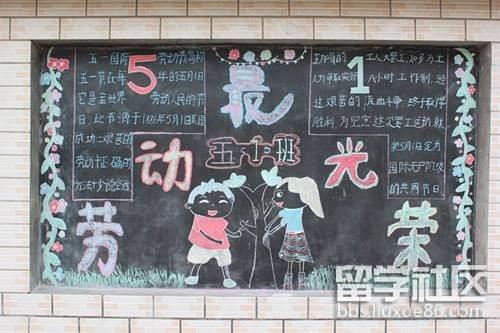 五一国际 劳动节简称
五一节在每 年的五月1日
它是全世界 劳动人民的节
日,此节源于1886年5月1日美国
成功二艰苦的
劳动
5
最
1
工人大罢工,
人力争取实行 八小时工作制,经
过艰苦的流血斗争,终于取得
胜利,为纪念这次罢工运动,就
把5月1日定为
国际无产阶级
的共同节日
五十班
动 光
劳 荣
留学社区
bbs.liuxue86.com